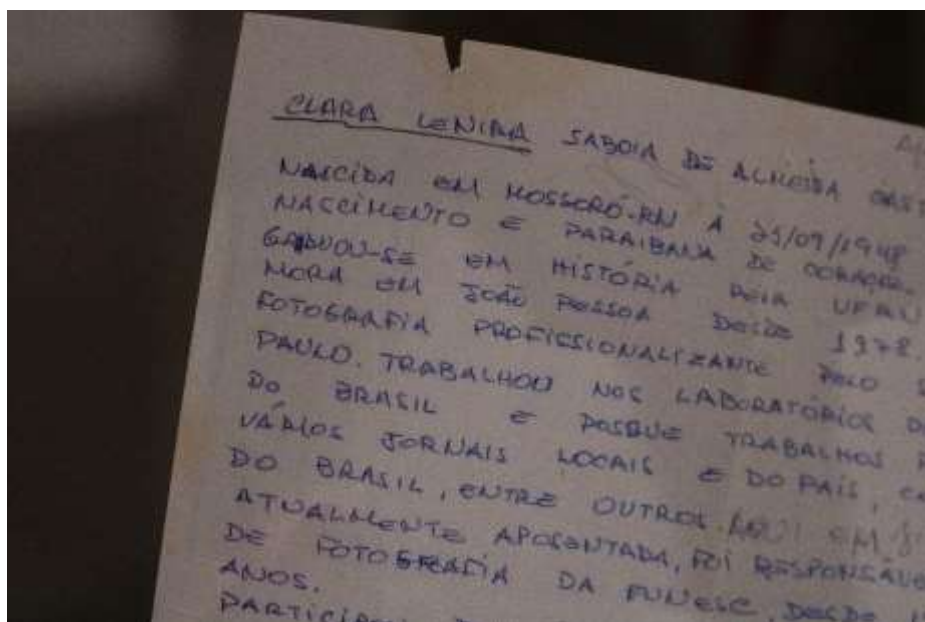 CLARA LENIRA SABOIA DE ALMEIDA
NASCIDA EM MOSSORÓ-RN À 25/09/1948
NASCIMENTO E PARAIBANA DE CORAÇÃO.
GRADUOU-SE EM HISTÓRIA PELA
MORA EM JOÃO PESSOA DESDE 1978.
FOTOGRAFIA PROFISSIONALIZANTE PELO S
PAULO. TRABALHOU NOS LABORATÓRIOS D
DO BRASIL E POSSUE TRABALHOS P
VÁRIOS JORNAIS LOCAIS E DO PAÍS, C
DO BRASIL, ENTRE OUTROS. AQUI EM
ATUALMENTE APOSENTADA, FOI RESPONSÁVE
DE FOTOGRAFIA DA FUNESC, DESDE
ANOS.